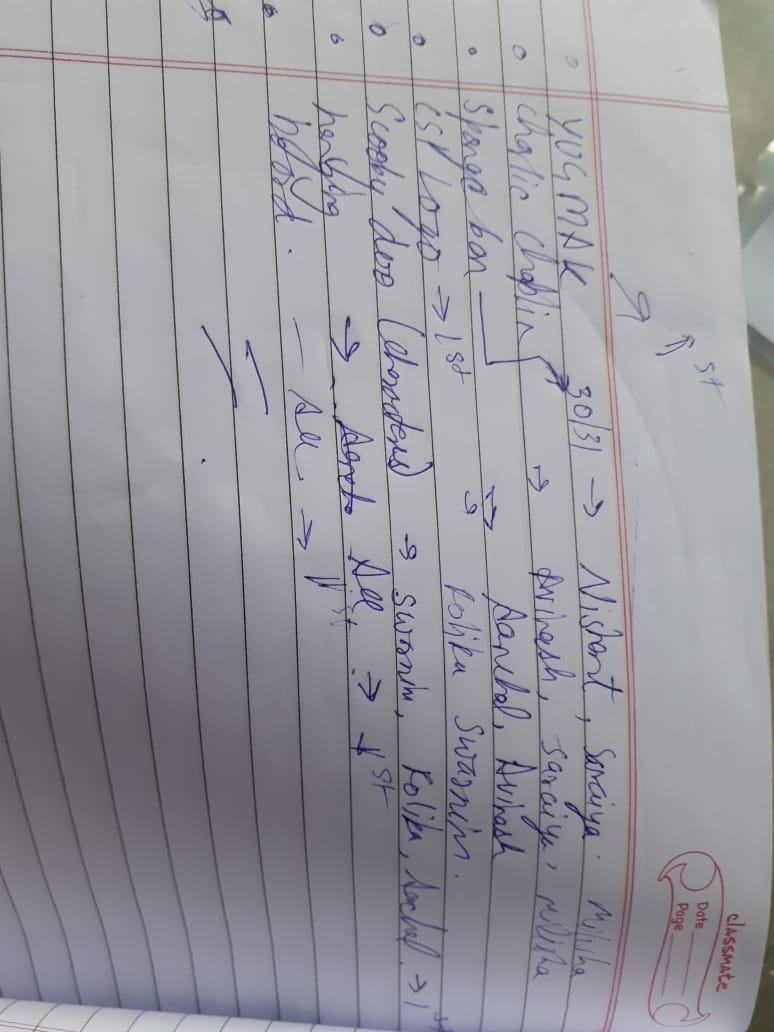 classmate
Date
Page
1st
YUGMAK 30/31 → Nishant, Saraiya. Milisha
Charlie Chaplin → Avinash, Saraiya, Milisha
Sponge bon → Aanchal, Avinash
CSI Logo → 1st Kolika Swarnim.
Scooby doo (characters) → Swarnim, Kolika, Aachal → 1st
hanging → All → 1st
board. — All → 1st